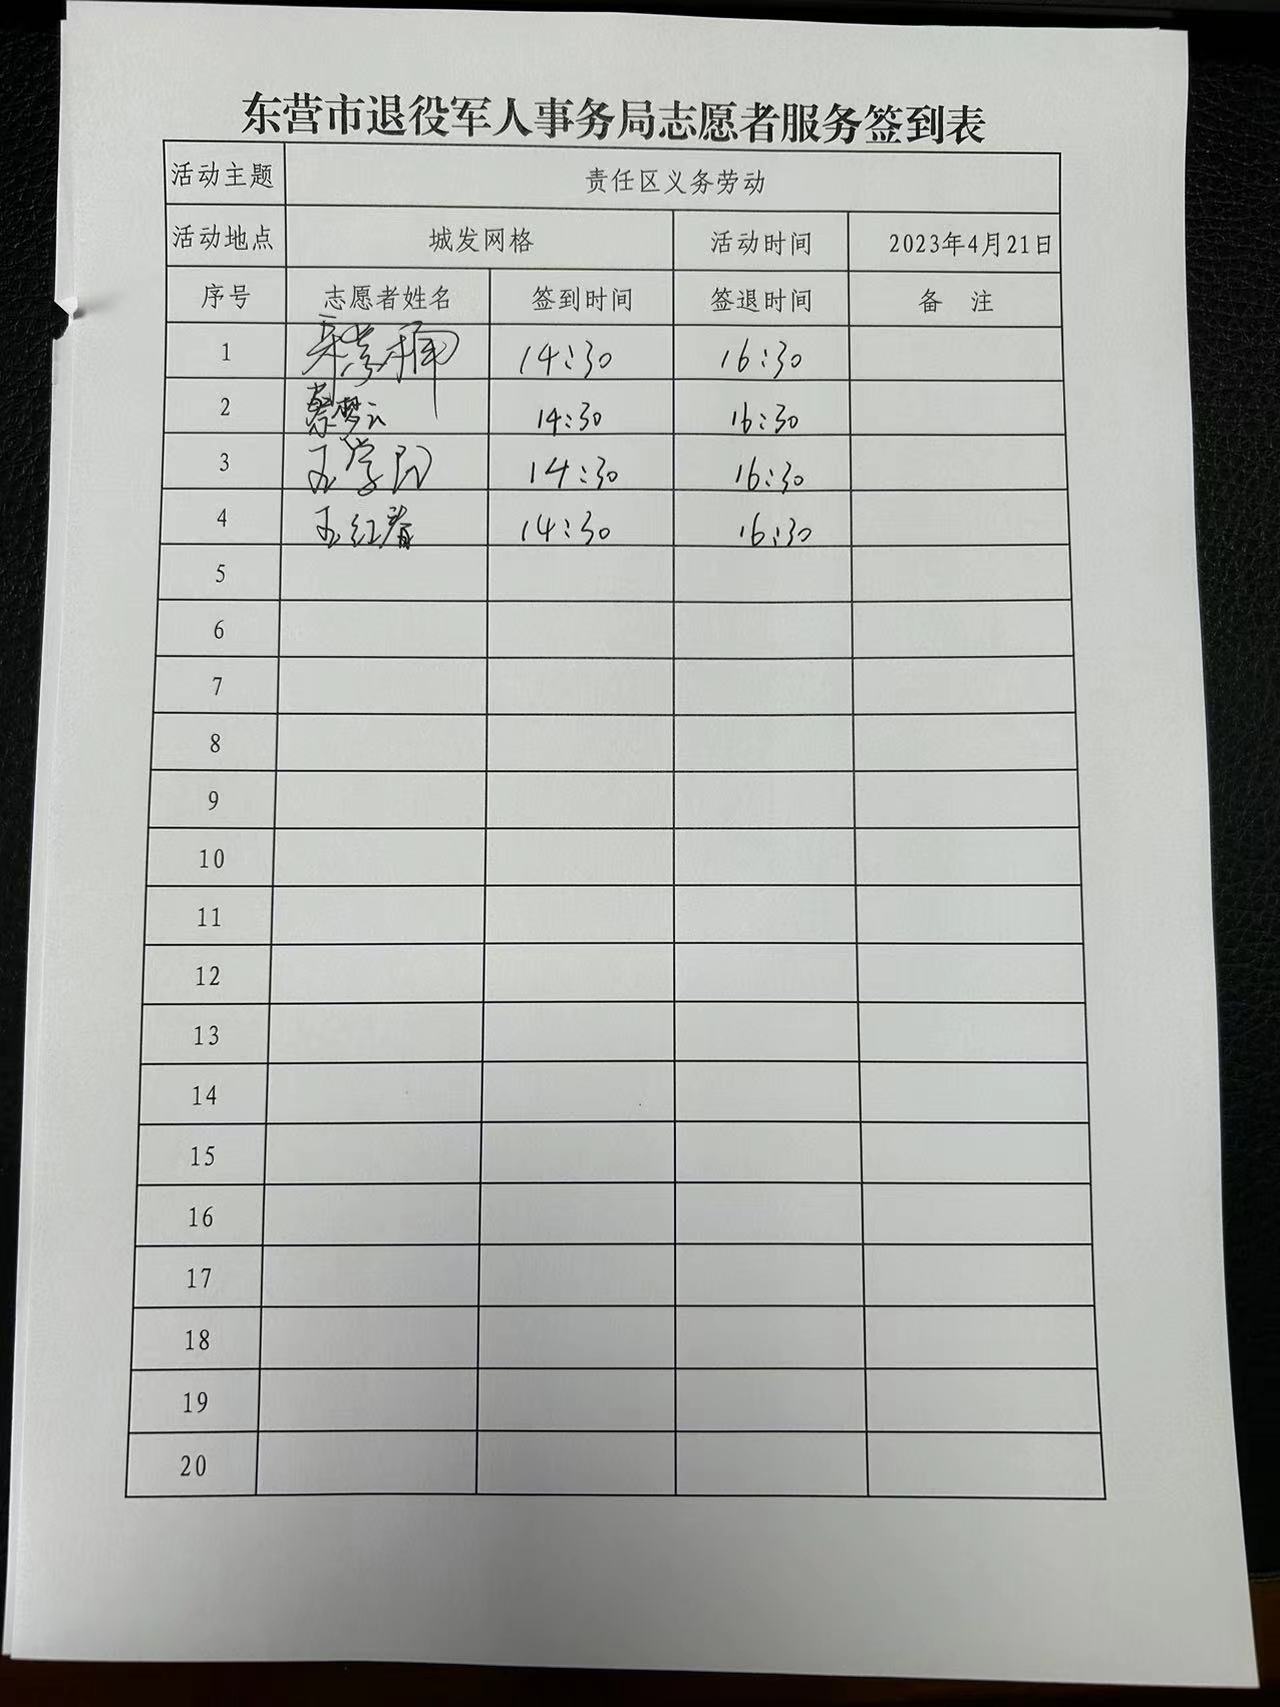 东营市退役军人事务局志愿者服务签到表
活动主题 责任区义务劳动
活动地点 城发网格 活动时间 2023年4月21日
序号 志愿者姓名 签到时间 签退时间 备 注
1 14:30 16:30
2 蔡梦云 14:30 16:30
3 王学民 14:30 16:30
4 王红春 14:30 16:30
5
6
7
8
9
10
11
12
13
14
15
16
17
18
19
20